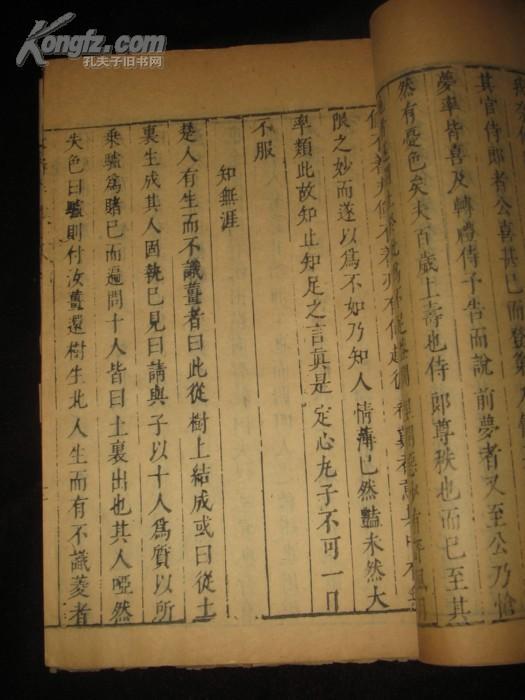 Kongfz.com
孔夫子旧书网
其官侍郎者公喜甚已而登
夢率皆喜及轉禮侍子告而說前夢者又至公乃愴
然有憂色矣夫百歲上壽也侍郎尊秩也而已至其
限之妙而遂以為不如乃知人情薄已然豔未然大
率類此故知止知足之言真是定心丸子不可一日
不服
知無涯
楚人有生而不識薑者曰此從樹上結成或曰從土
裏生成其人固執已見曰請與子以十人為質以所
乘驢為賭已而遍問十人皆曰土裏出也其人啞然
失色曰驢則付汝薑還樹生北人生而有不識菱者